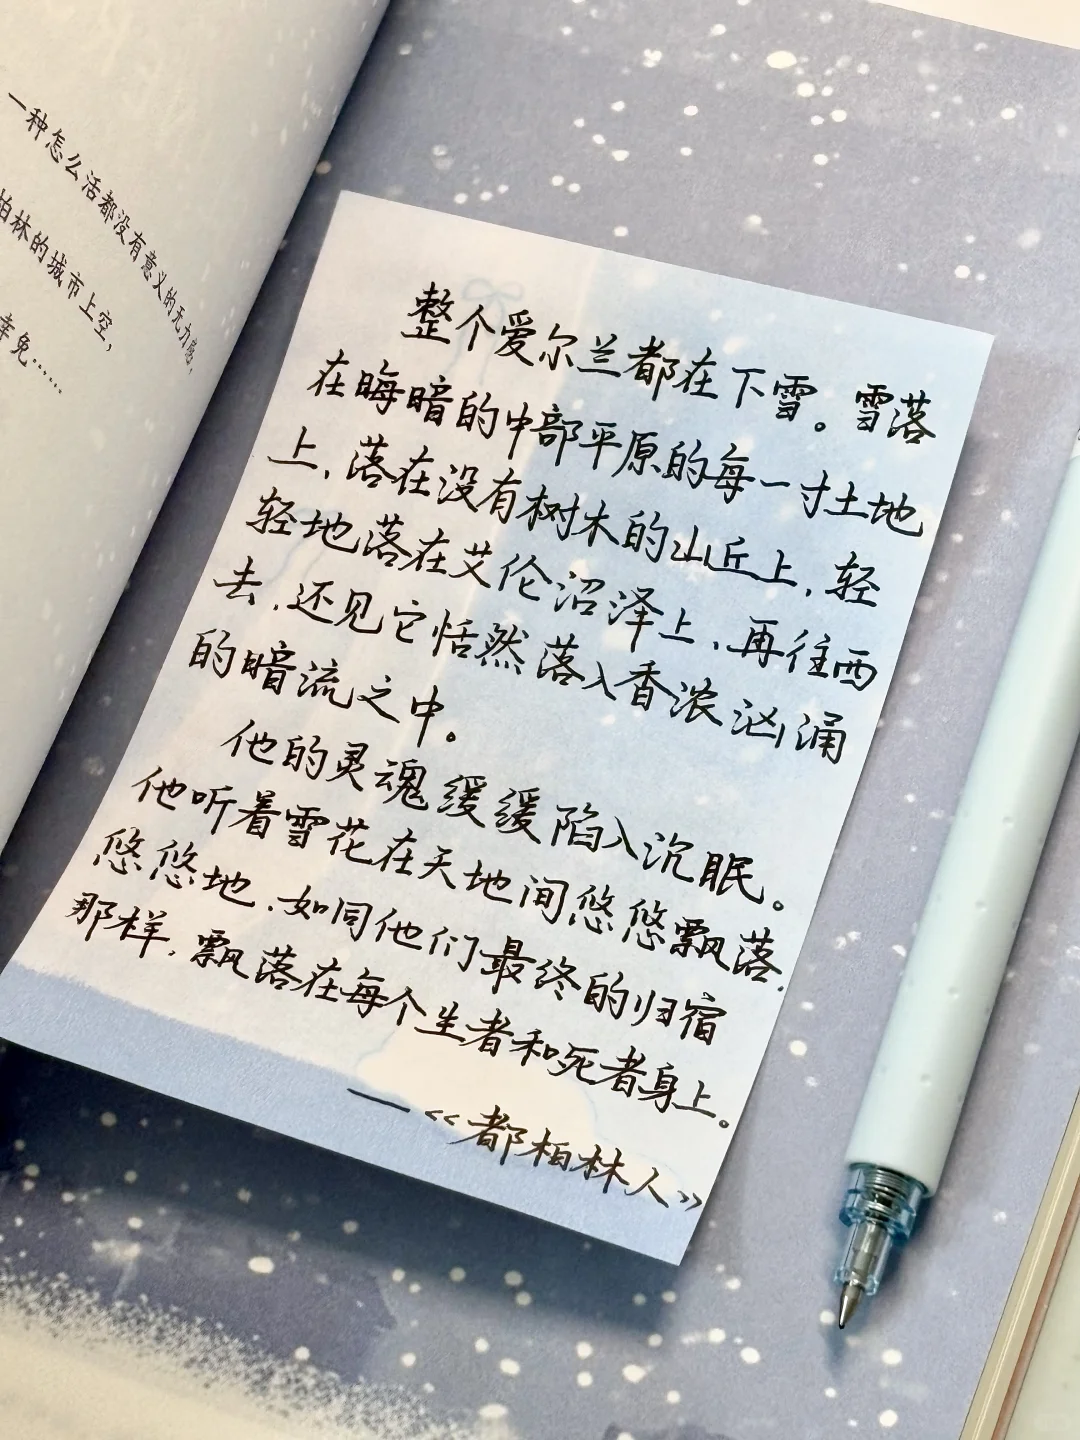 一种怎么活都没有意义的无力感，
柏林的城市上空，
幸免……
整个爱尔兰都在下雪。雪落
在晦暗的中部平原的每一寸土地
上，落在没有树木的山丘上，轻
轻地落在艾伦沼泽上，再往西
去，还见它恬然落入香浓汹涌
的暗流之中。
他的灵魂缓缓陷入沉眠。
他听着雪花在天地间悠悠飘落，
悠悠地，如同他们最终的归宿
那样，飘落在每个生者和死者身上。
—《都柏林人》